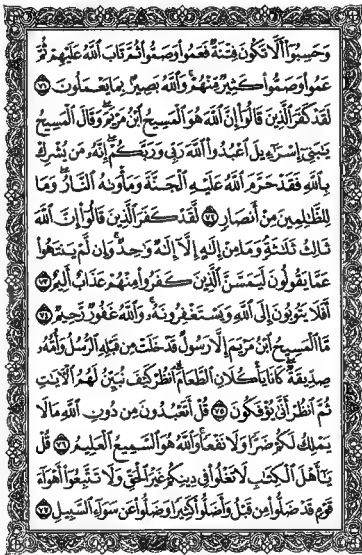 وَحَسِبُوٓا۟ أَلَّا تَكُونَ فِتْنَةٌ فَعَمُوا۟ وَصَمُّوا۟ ثُمَّ تَابَ ٱللَّهُ عَلَيْهِمْ ثُمَّ
عَمُوا۟ وَصَمُّوا۟ كَثِيرٌ مِّنْهُمْ ۚ وَٱللَّهُ بَصِيرٌۢ بِمَا يَعْمَلُونَ ﴿٧١﴾
لَقَدْ كَفَرَ ٱلَّذِينَ قَالُوٓا۟ إِنَّ ٱللَّهَ هُوَ ٱلْمَسِيحُ ٱبْنُ مَرْيَمَ ۖ وَقَالَ ٱلْمَسِيحُ
يَٰبَنِىٓ إِسْرَٰٓءِيلَ ٱعْبُدُوا۟ ٱللَّهَ رَبِّى وَرَبَّكُمْ ۖ إِنَّهُۥ مَن يُشْرِكْ
بِٱللَّهِ فَقَدْ حَرَّمَ ٱللَّهُ عَلَيْهِ ٱلْجَنَّةَ وَمَأْوَىٰهُ ٱلنَّارُ ۖ وَمَا
لِلظَّٰلِمِينَ مِنْ أَنصَارٍ ﴿٧٢﴾ لَّقَدْ كَفَرَ ٱلَّذِينَ قَالُوٓا۟ إِنَّ ٱللَّهَ
ثَالِثُ ثَلَٰثَةٍ ۘ وَمَا مِنْ إِلَٰهٍ إِلَّآ إِلَٰهٌ وَٰحِدٌ ۚ وَإِن لَّمْ يَنتَهُوا۟
عَمَّا يَقُولُونَ لَيَمَسَّنَّ ٱلَّذِينَ كَفَرُوا۟ مِنْهُمْ عَذَابٌ أَلِيمٌ ﴿٧٣﴾
أَفَلَا يَتُوبُونَ إِلَى ٱللَّهِ وَيَسْتَغْفِرُونَهُۥ ۚ وَٱللَّهُ غَفُورٌ رَّحِيمٌ ﴿٧٤﴾
مَّا ٱلْمَسِيحُ ٱبْنُ مَرْيَمَ إِلَّا رَسُولٌ قَدْ خَلَتْ مِن قَبْلِهِ ٱلرُّسُلُ وَأُمُّهُۥ
صِدِّيقَةٌ ۖ كَانَا يَأْكُلَانِ ٱلطَّعَامَ ۗ ٱنظُرْ كَيْفَ نُبَيِّنُ لَهُمُ ٱلْءَايَٰتِ
ثُمَّ ٱنظُرْ أَنَّىٰ يُؤْفَكُونَ ﴿٧٥﴾ قُلْ أَتَعْبُدُونَ مِن دُونِ ٱللَّهِ مَا لَا
يَمْلِكُ لَكُمْ ضَرًّا وَلَا نَفْعًا ۚ وَٱللَّهُ هُوَ ٱلسَّمِيعُ ٱلْعَلِيمُ ﴿٧٦﴾ قُلْ
يَٰٓأَهْلَ ٱلْكِتَٰبِ لَا تَغْلُوا۟ فِى دِينِكُمْ غَيْرَ ٱلْحَقِّ وَلَا تَتَّبِعُوٓا۟ أَهْوَآءَ
قَوْمٍ قَدْ ضَلُّوا۟ مِن قَبْلُ وَأَضَلُّوا۟ كَثِيرًا وَضَلُّوا۟ عَن سَوَآءِ ٱلسَّبِيلِ ﴿٧٧﴾